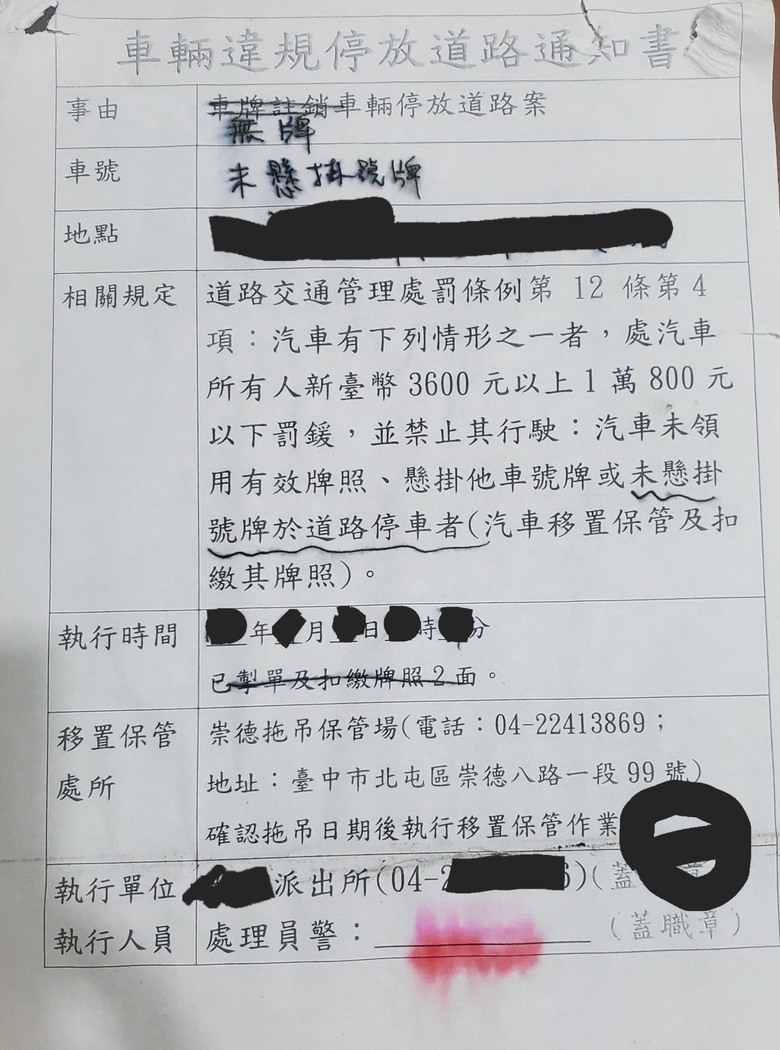 車輛違規停放道路通知書
事由 車牌註銷車輛停放道路案
無牌
車號 未懸掛號牌
地點
相關規定 道路交通管理處罰條例第 12 條第 4
項：汽車有下列情形之一者，處汽車
所有人新臺幣 3600 元以上 1 萬 800 元
以下罰鍰，並禁止其行駛：汽車未領
用有效牌照、懸掛他車號牌或未懸掛
號牌於道路停車者(汽車移置保管及扣
繳其牌照)。
執行時間 年 月 日 時 分
已掣單及扣繳牌照 2 面。
移置保管 崇德拖吊保管場(電話：04-22413869；
處所 地址：臺中市北屯區崇德八路一段 99 號)
確認拖吊日期後執行移置保管作業
執行單位 派出所(04-2 6)(蓋 章
執行人員 處理員警： (蓋職章)